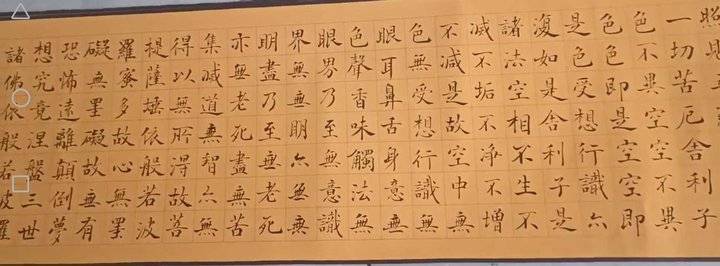 照見
一切苦厄舍利子
色不異空空不異
色色即是空空即
是色受想行識亦
復如是舍利子是
諸法空相不生不
滅不垢不淨不增
不減是故空中無
色無受想行識無
眼耳鼻舌身意無
色聲香味觸法無
眼界乃至無意識
界無無明亦無無
明盡乃至無老死
亦無老死盡無苦
集滅道無智亦無
得以無所得故菩
提薩埵依般若波
羅蜜多故心無罣
礙無罣礙故無有
恐怖遠離顛倒夢
想究竟涅槃三世
諸佛依般若波羅